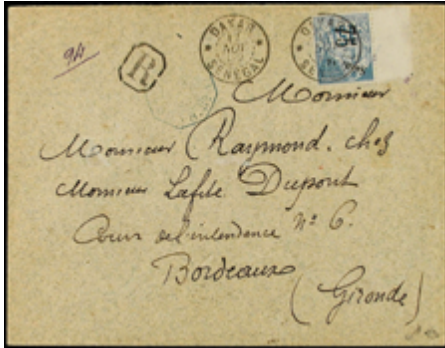 94
R
DAKAR
SENEGAL
DAKAR
75
Monsieur
Monsieur Raymond. chez
Monsieur Lafite Dupont
Cours de l'intendance n° 6.
Bordeaux
(Gironde)